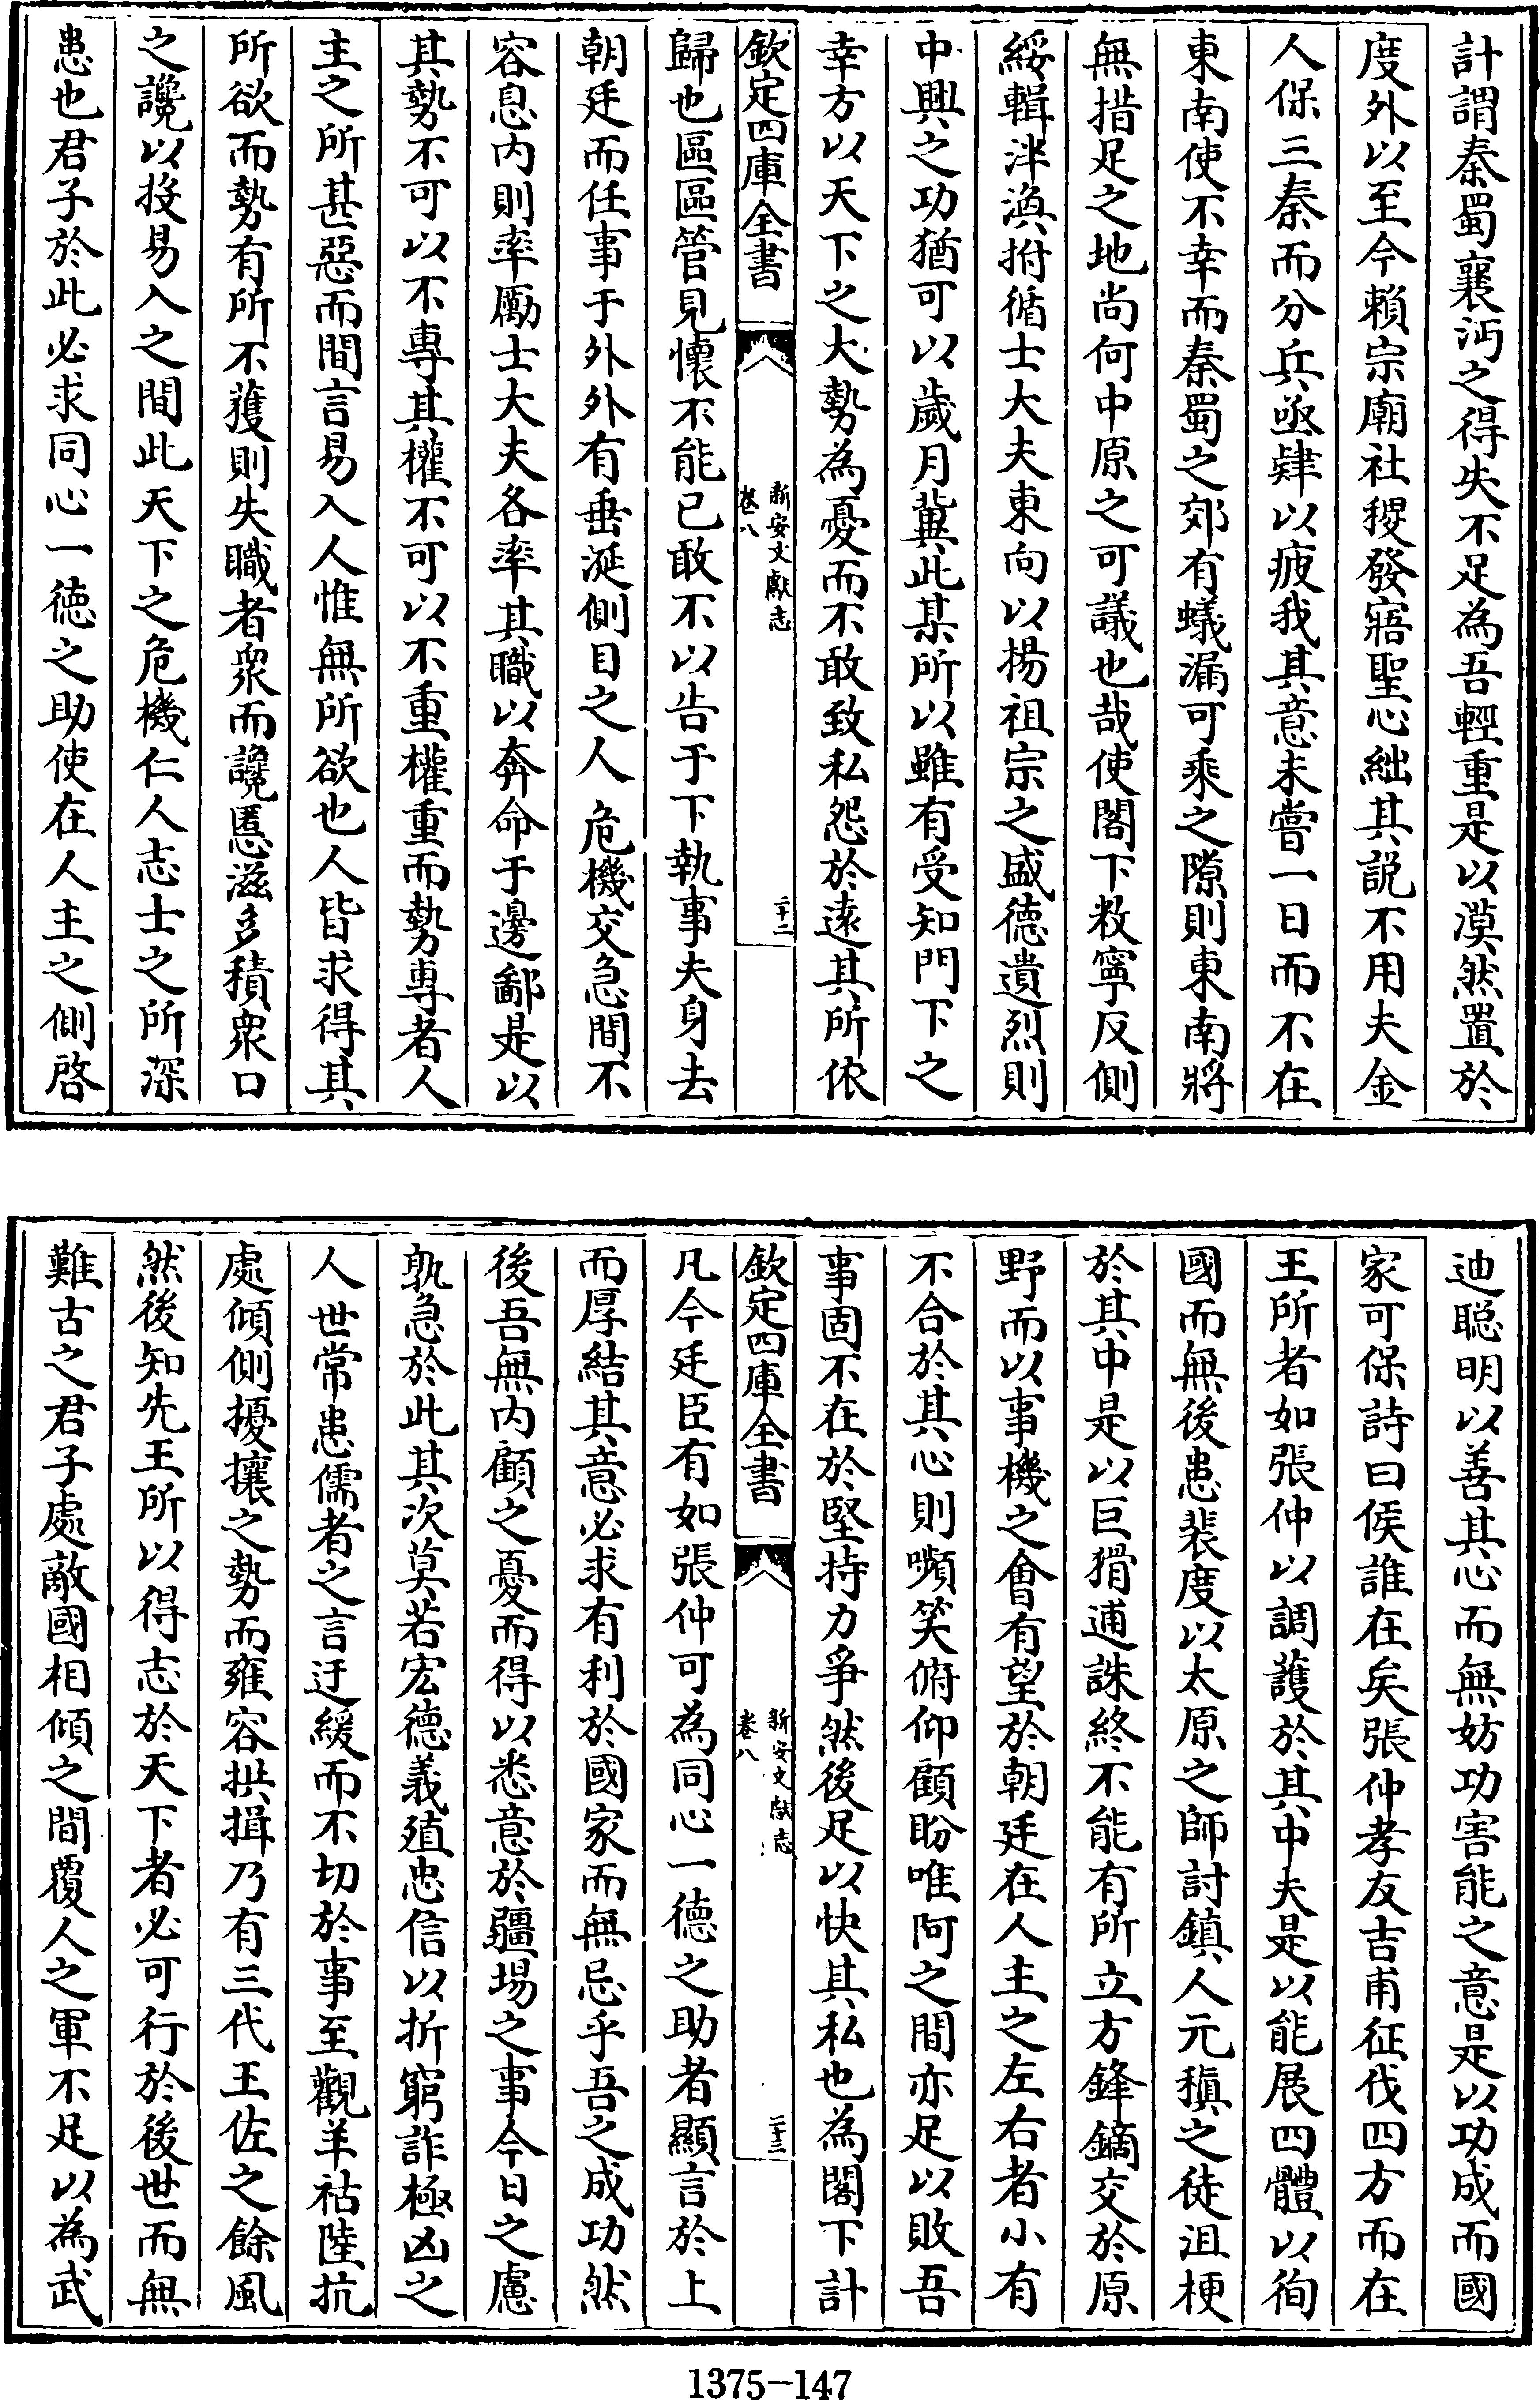 計謂秦蜀襄沔之得失不足為吾輕重是以漠然置於
度外以至今賴宗廟社稷發寤聖心絀其説不用夫金
人保三秦而分兵亟肄以疲我其意未嘗一日而不在
東南使不幸而秦蜀之郊有蟻漏可乘之隙則東南將
無措足之地尚何中原之可議也哉使閣下敉寧反側
綏輯泮渙拊循士大夫東向以揚祖宗之盛德遺烈則
中興之功猶可以歲月冀此某所以雖有受知門下之
幸方以天下之大勢為憂而不敢致私怨於遠其所依
欽定四庫全書
新安文獻志
卷八
二十二
歸也區區管見懷不能已敢不以告于下執事夫身去
朝廷而任事于外外有垂涎側目之人危機交急間不
容息内則率厲士大夫各率其職以奔命于邊鄙是以
其勢不可以不專其權不可以不重權重而勢專者人
主之所甚惡而間言易入人惟無所欲也人皆求得其
所欲而勢有所不獲則失職者衆而讒慝滋多積衆口
之讒以投易入之間此天下之危機仁人志士之所深
患也君子於此必求同心一德之助使在人主之側啓
迪聰明以善其心而無妨功害能之意是以功成而國
家可保詩曰侯誰在矣張仲孝友吉甫征伐四方而在
王所者如張仲以調護於其中夫是以能展四體以徇
國而無後患裴度以太原之師討鎮人元稹之徒沮梗
於其中是以巨猾逋誅終不能有所立方鋒鏑交於原
野而以事機之會有望於朝廷在人主之左右者小有
不合於其心則嚬笑俯仰顧盼唯阿之間亦足以敗吾
事固不在於堅持力爭然後足以快其私也為閣下計
欽定四庫全書
新安文獻志
卷八
二十三
凡今廷臣有如張仲可為同心一德之助者顯言於上
而厚結其意必求有利於國家而無忌乎吾之成功然
後吾無内顧之憂而得以悉意於疆場之事今日之慮
孰急於此其次莫若宏德義殖忠信以折窮詐極凶之
人世常患儒者之言迂緩而不切於事至觀羊祜陸抗
處傾側擾攘之勢而雍容拱揖乃有三代王佐之餘風
然後知先王所以得志於天下者必可行於後世而無
難古之君子處敵國相傾之間覆人之軍不足以為武
1375-147